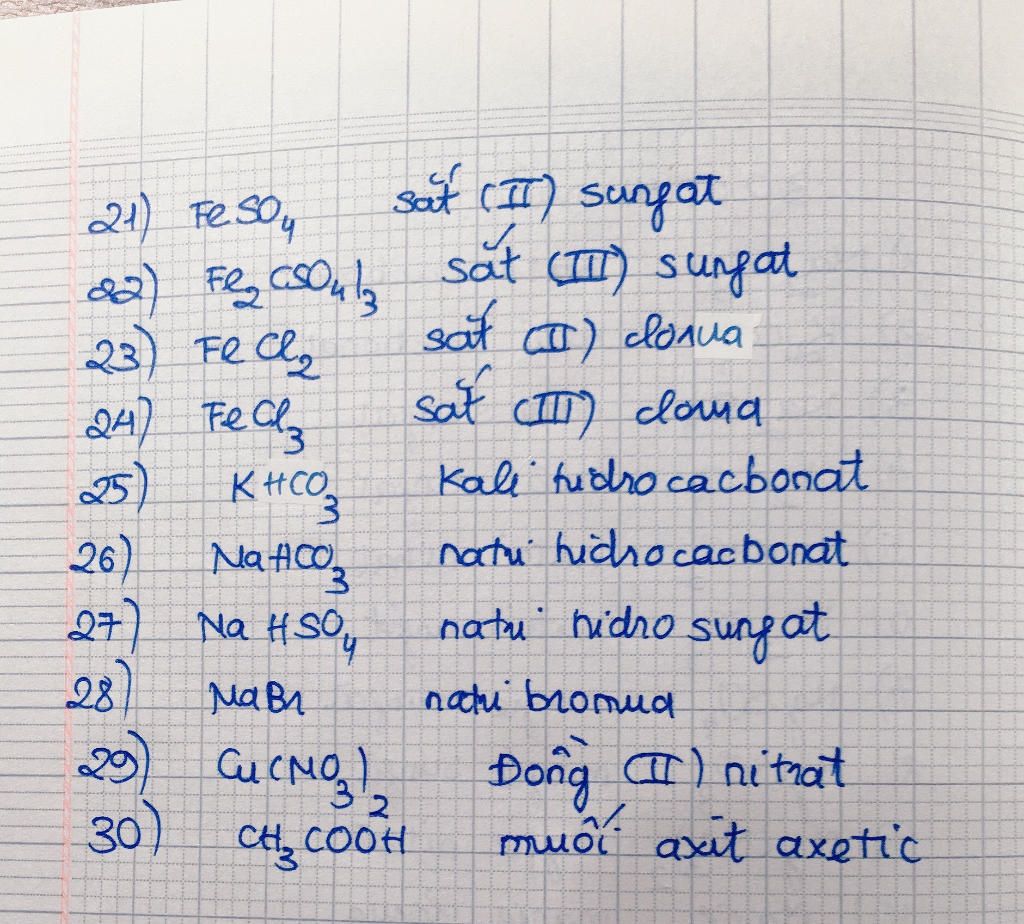 21) FeSO4 sắt (II) sunfat
22) Fe2(SO4)3 sắt (III) sunfat
23) FeCl2 sắt (II) clorua
24) FeCl3 sắt (III) clorua
25) KHCO3 Kali hidro cacbonat
26) NaHCO3 natri hidro cacbonat
27) NaHSO4 natri hidro sunfat
28) NaBr natri bromua
29) Cu(NO3)2 Đồng (II) nitrat
30) CH3COOH muối axit axetic